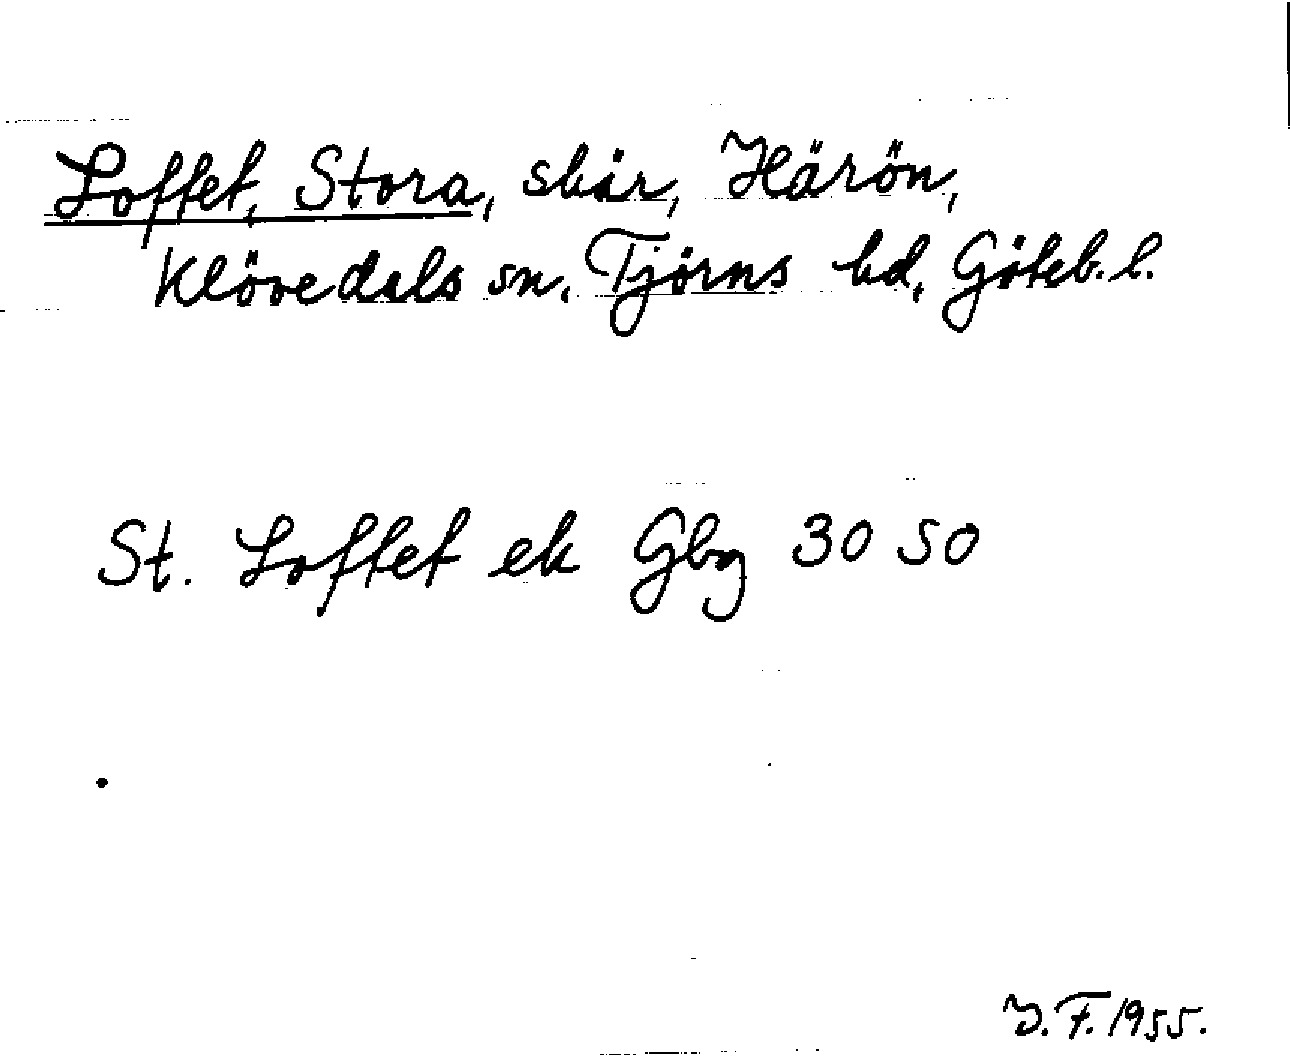 Loftet, Stora, skär, Härön,
Klövedals sn, Tjörns hd, Göteb. l.
St. Loftet ek Gbg 30 SO
J. F. 1955.